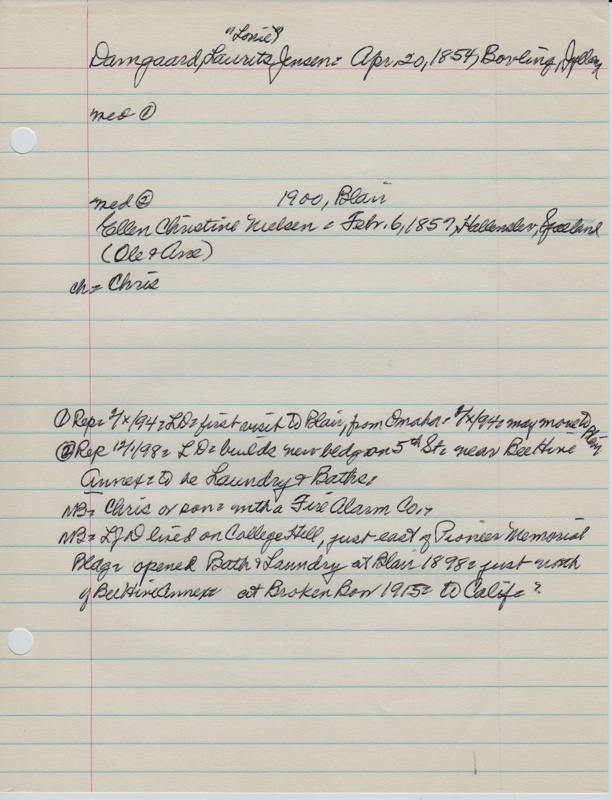 "Louie"
Damgaard, Laurits Jensen = Apr. 20, 1854, Bovling, Jylland
med ①
med ② 1900, Blair
Ellen Christine Nielsen = Febr. 6, 1857, Hallenslev, Sjaeland
(Ole & Ane)
ch = Chris
① Rep = /94 = LD = first visit to Blair, from Omaha = /94 = may move to Blair
② Rep 12/1/98 = LD = builds new bldg on 5th St = near Bee Hive
Annex = to be Laundry & Baths =
NB = Chris or son = with a Fire Alarm Co. =
NB = LJD lived on College Hill, just east of Pioneer Memorial
Bldg = opened Bath & Laundry at Blair 1898 = just north
of Bee Hive Annex = at Broken Bow 1915 = to Calif = ?